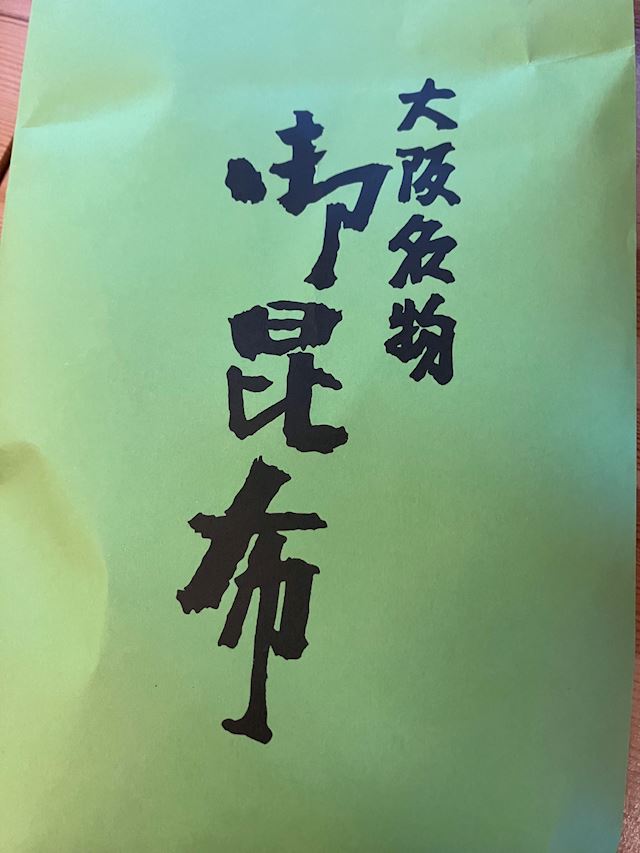 大阪名物
御昆布